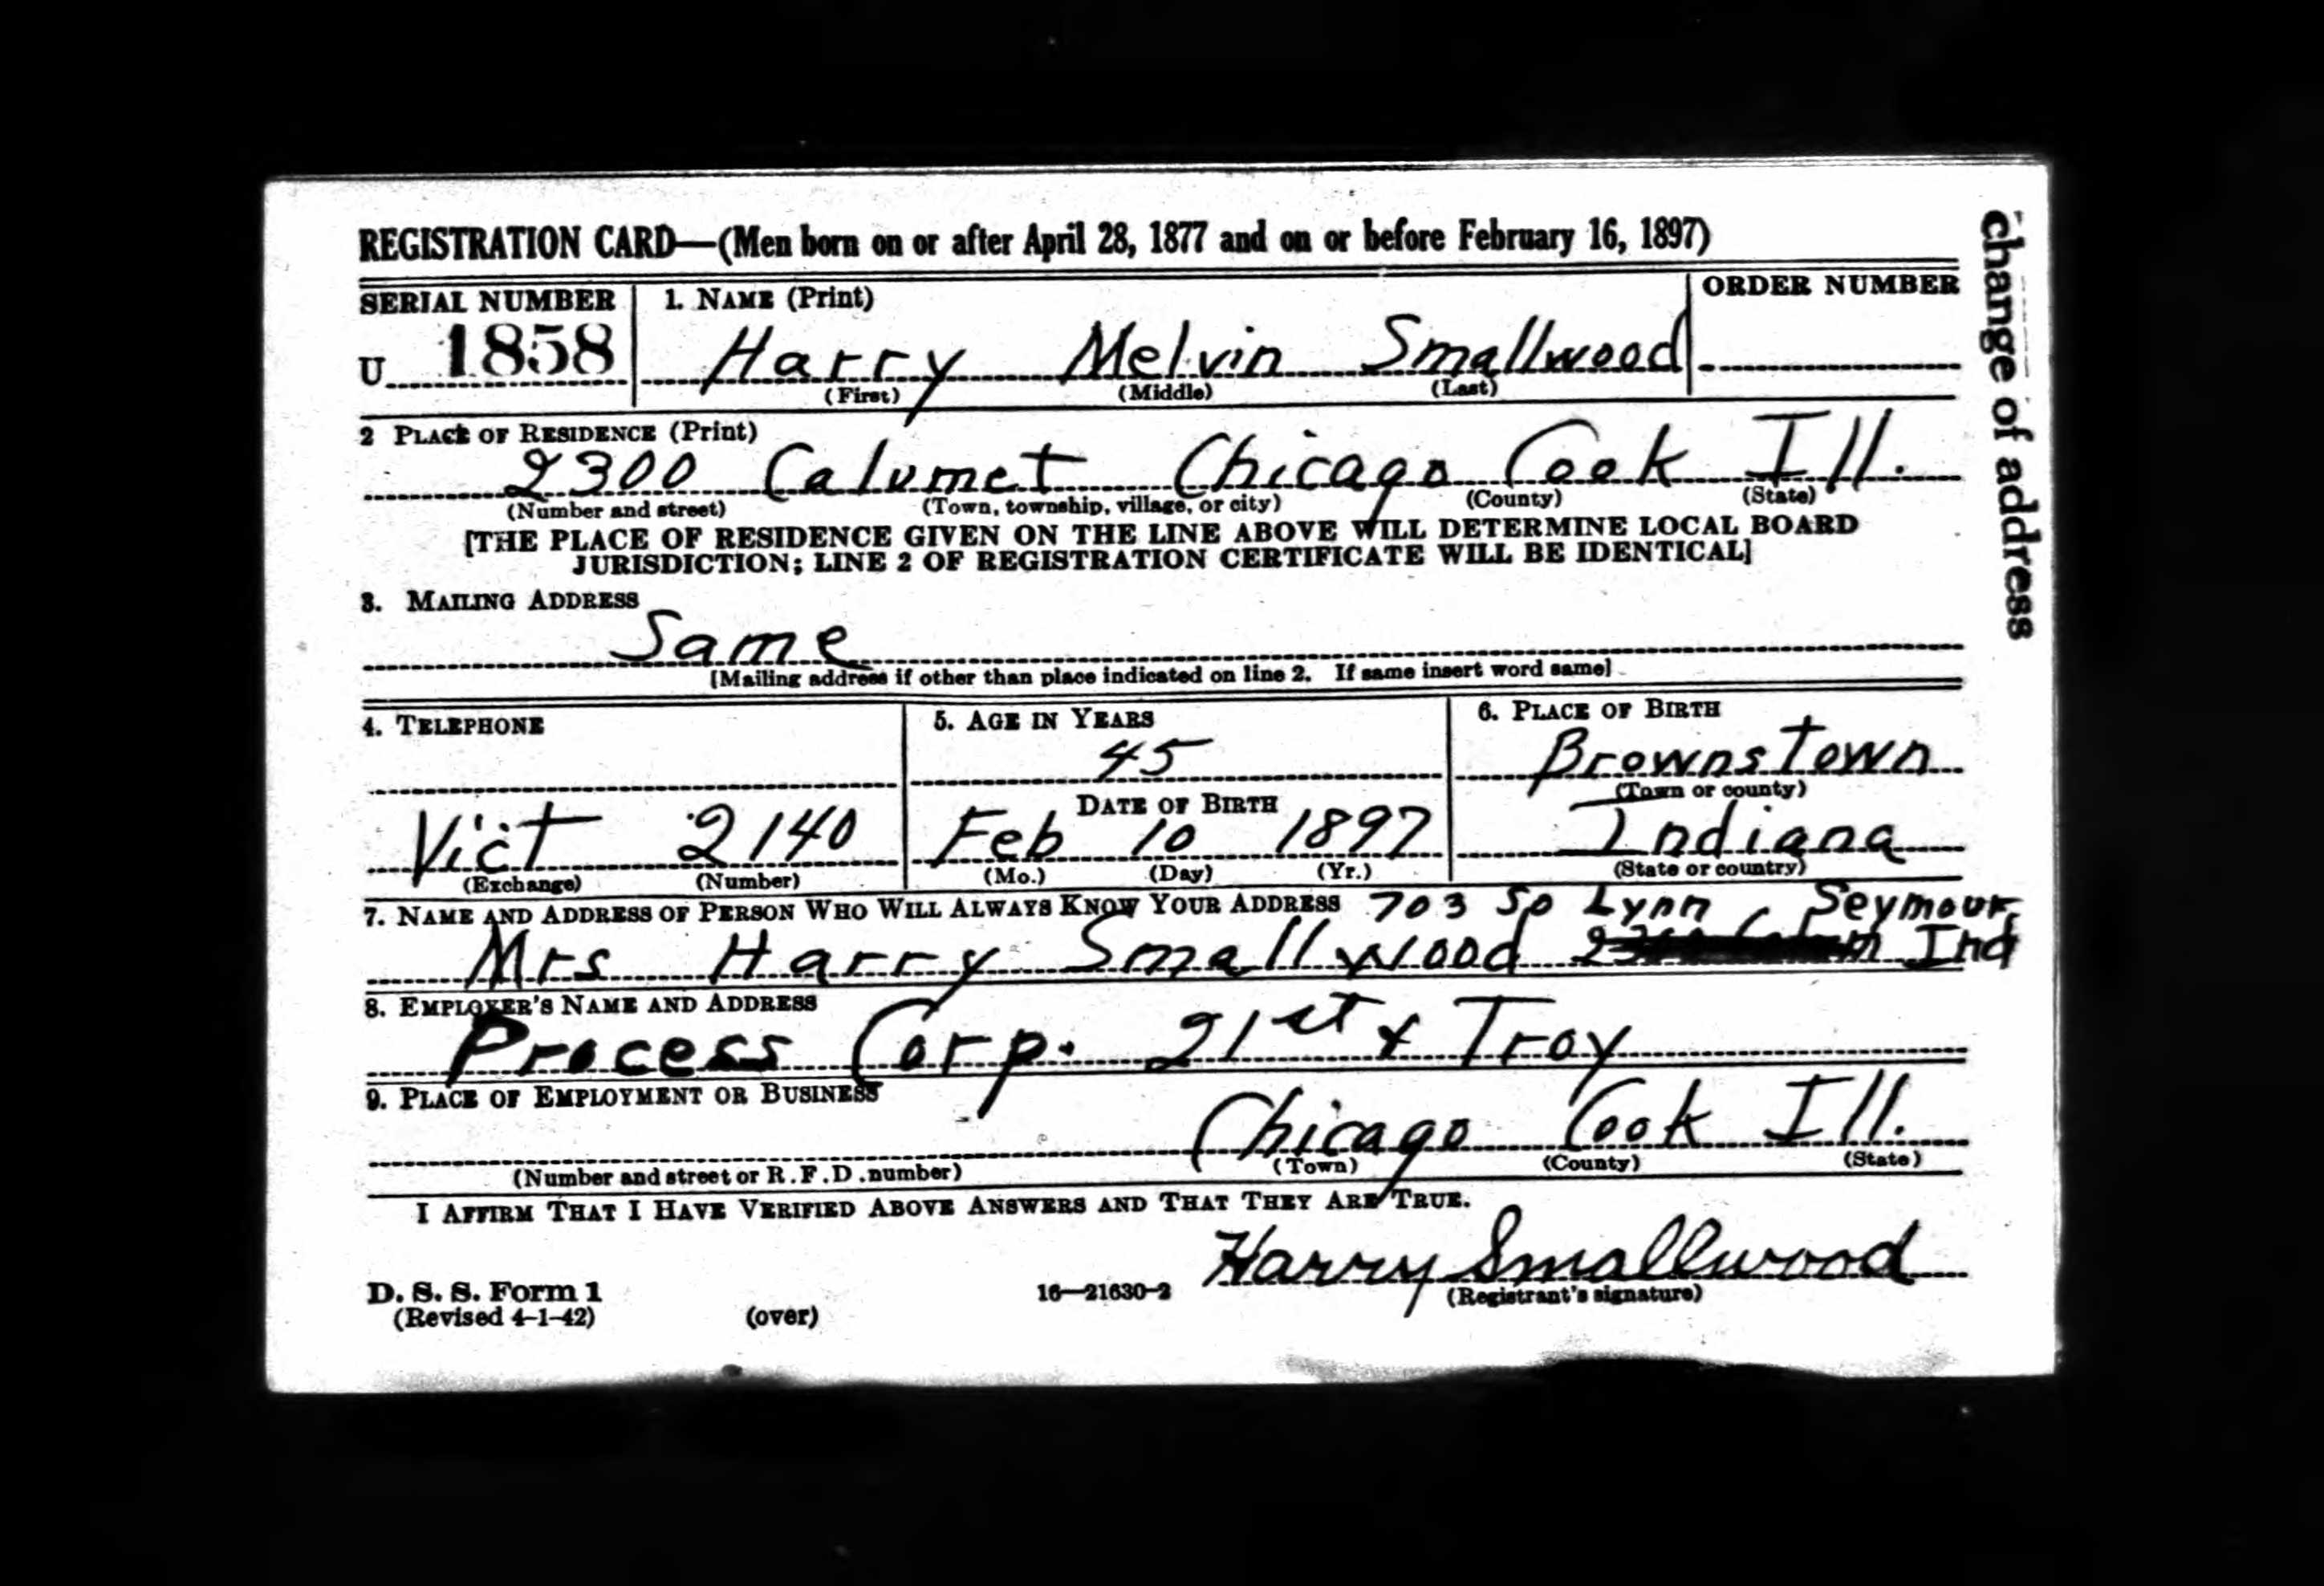 REGISTRATION CARD—(Men born on or after April 28, 1877 and on or before February 16, 1897)
SERIAL NUMBER 1. NAME (Print) ORDER NUMBER
U 1858 Harry Melvin Smallwood
(First) (Middle) (Last)
2 PLACE OF RESIDENCE (Print)
2300 Calumet Chicago Cook Ill.
(Number and street) (Town, township, village, or city) (County) (State)
[THE PLACE OF RESIDENCE GIVEN ON THE LINE ABOVE WILL DETERMINE LOCAL BOARD
JURISDICTION; LINE 2 OF REGISTRATION CERTIFICATE WILL BE IDENTICAL]
3. MAILING ADDRESS
Same
[Mailing address if other than place indicated on line 2. If same insert word same]
4. TELEPHONE 5. AGE IN YEARS 6. PLACE OF BIRTH
45 Brownstown
DATE OF BIRTH (Town or county)
Vict 2140 Feb 10 1897 Indiana
(Exchange) (Number) (Mo.) (Day) (Yr.) (State or country)
7. NAME AND ADDRESS OF PERSON WHO WILL ALWAYS KNOW YOUR ADDRESS 703 So Lynn, Seymour,
Mrs Harry Smallwood Ind
8. EMPLOYER'S NAME AND ADDRESS
Process Corp. 21st & Troy
9. PLACE OF EMPLOYMENT OR BUSINESS
Chicago Cook Ill.
(Number and street or R.F.D. number) (Town) (County) (State)
I AFFIRM THAT I HAVE VERIFIED ABOVE ANSWERS AND THAT THEY ARE TRUE.
Harry Smallwood
D. S. S. Form 1 16—21630-2 (Registrant's signature)
(Revised 4-1-42) (over)
change of address